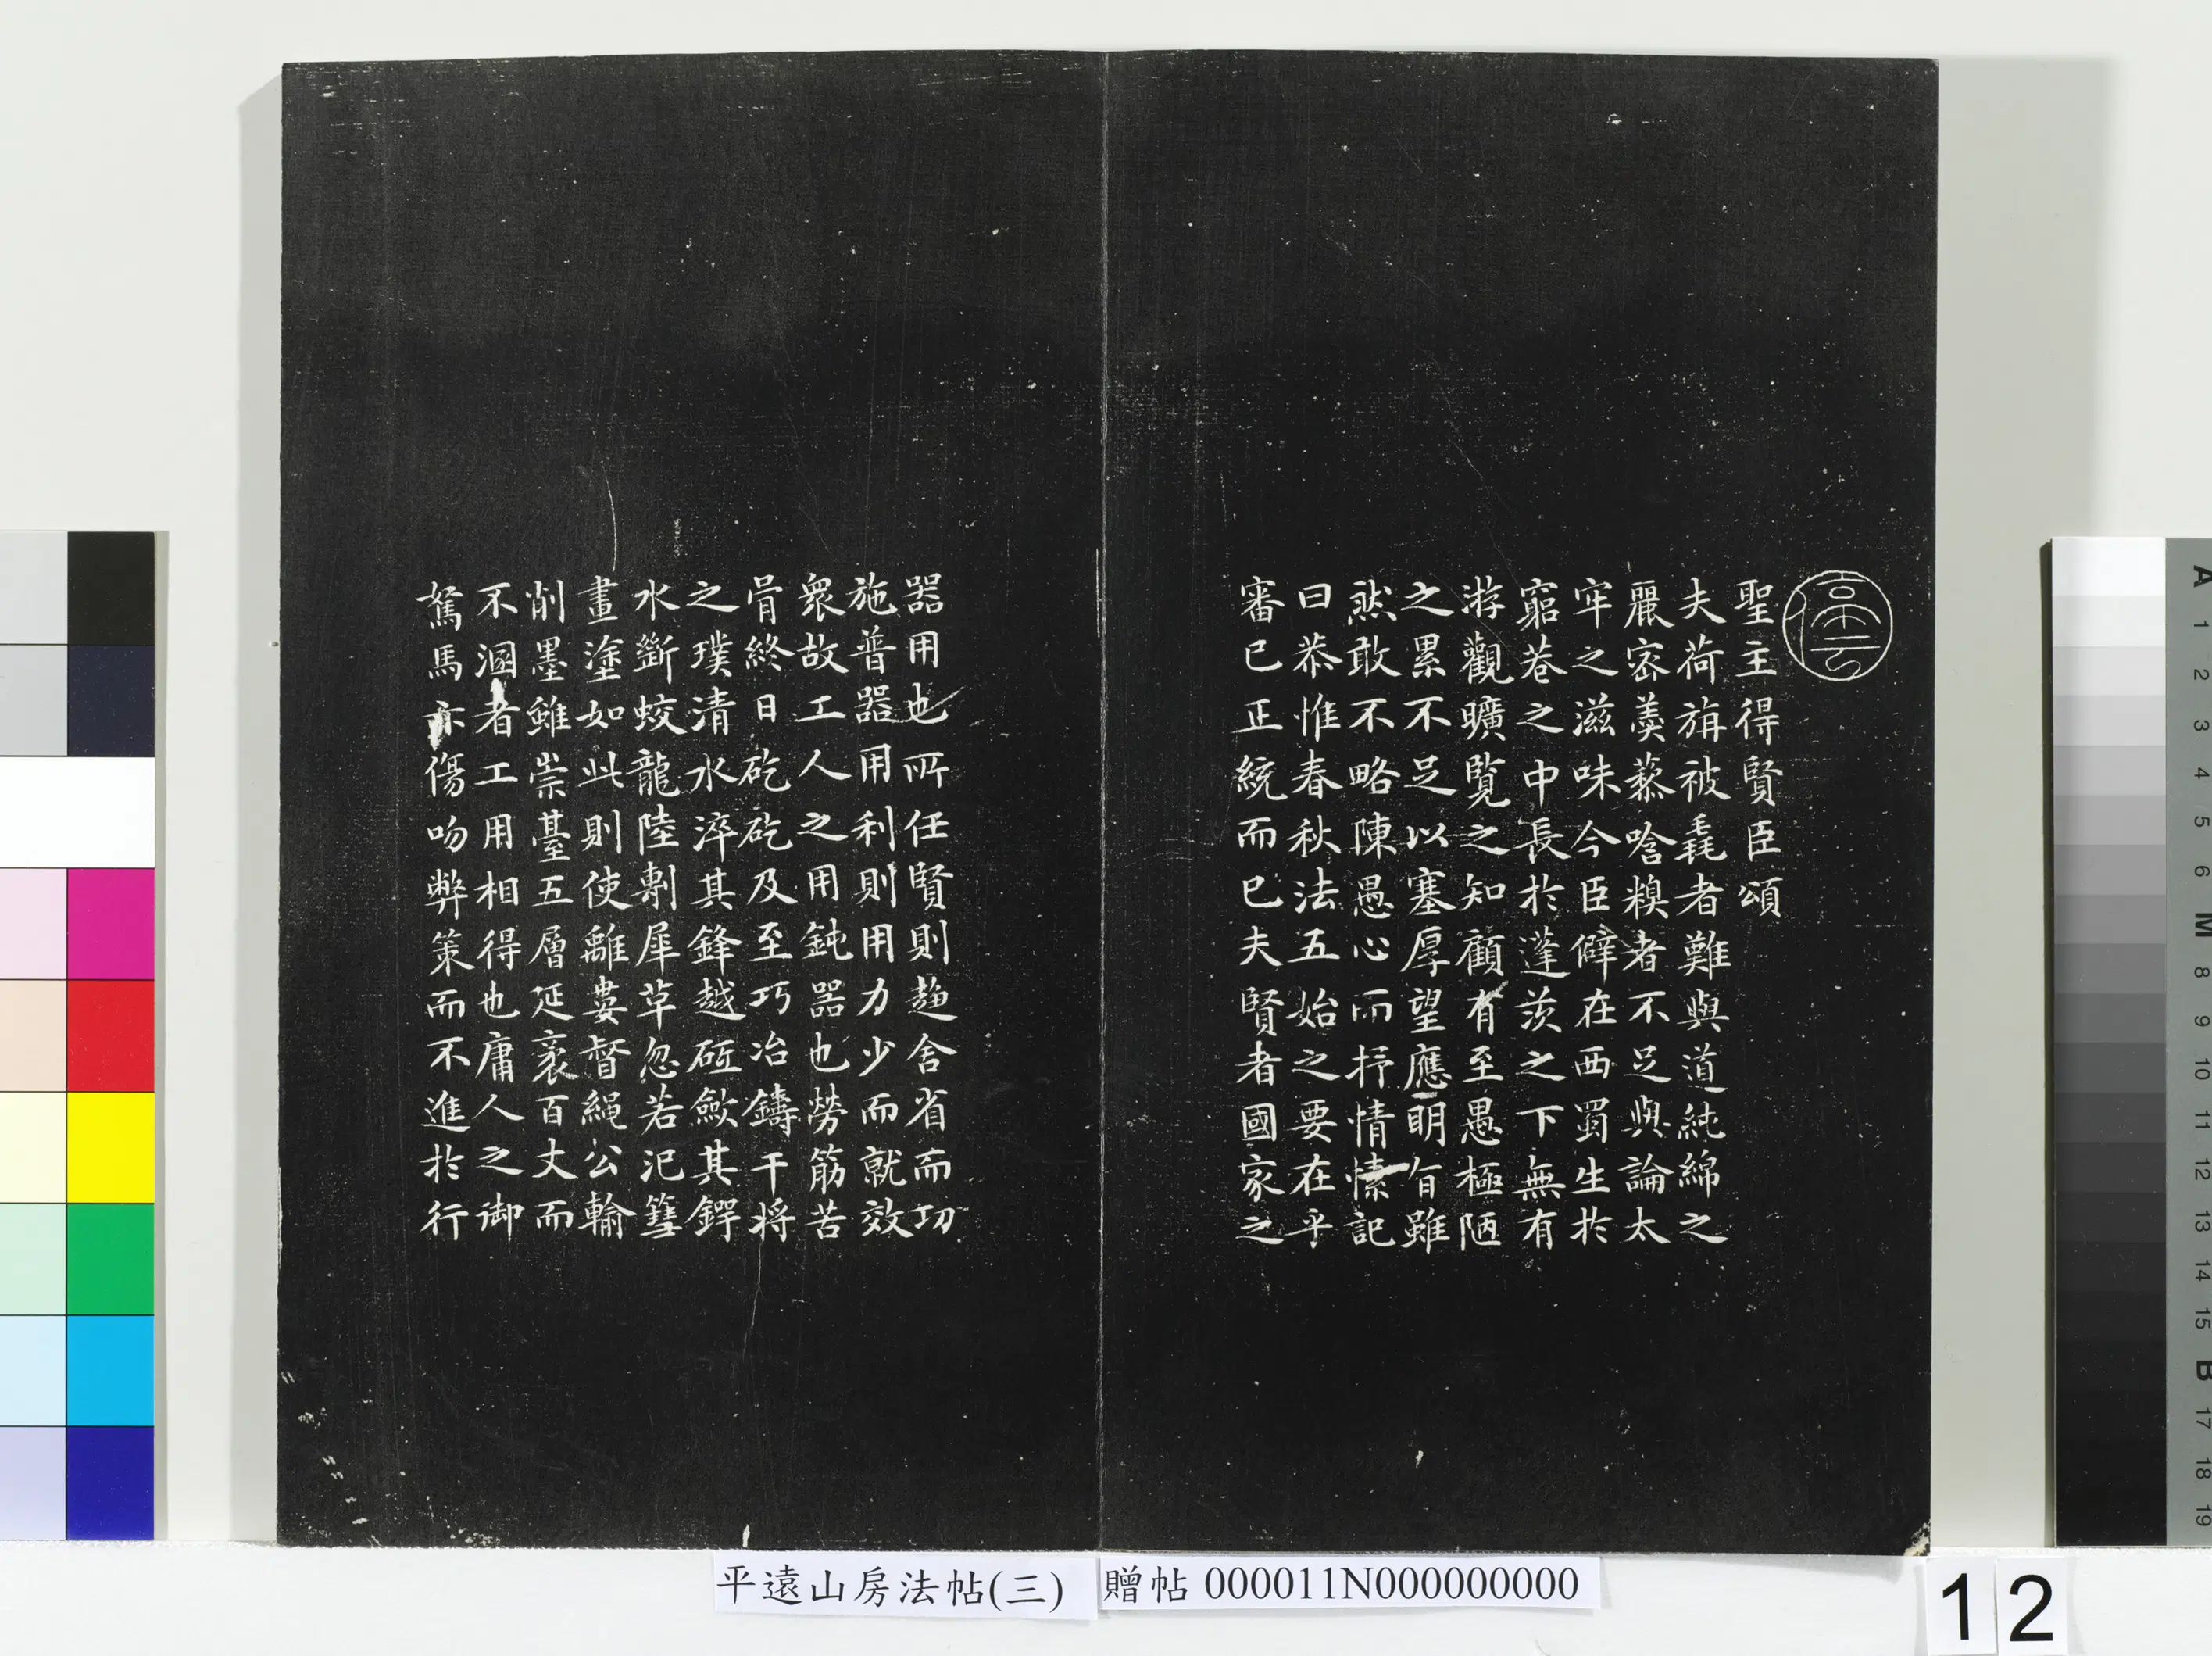 停雲
聖主得賢臣頌
夫荷旃被毳者難與道純綿之
麗密羹藜唅糗者不足與論太
牢之滋味今臣僻在西蜀生於
窮巷之中長於蓬茨之下無有
游觀曠覽之知顧有至愚極陋
之累不足以塞厚望應明旨雖
然敢不略陳愚心而抒情愫記
曰恭惟春秋法五始之要在乎
審已正統而已夫賢者國家之
器用也所任賢則趨舍省而功
施普器用利則用力少而就效
衆故工人之用鈍器也勞筋苦
骨終日矻矻及至巧冶鑄干將
之璞清水淬其鋒越砥歛其鍔
水斷蛟龍陸剸犀革忽若汜篲
畫塗如此則使離婁督繩公輸
削墨雖崇臺五層延袤百丈而
不溷者工用相得也庸人之御
駑馬亦傷吻弊策而不進於行
平遠山房法帖(三)
贈帖 000011N000000000
12
A 1 2 3 4 5 6 M 8 9 10 11 12 13 14 15 B 17 18 19